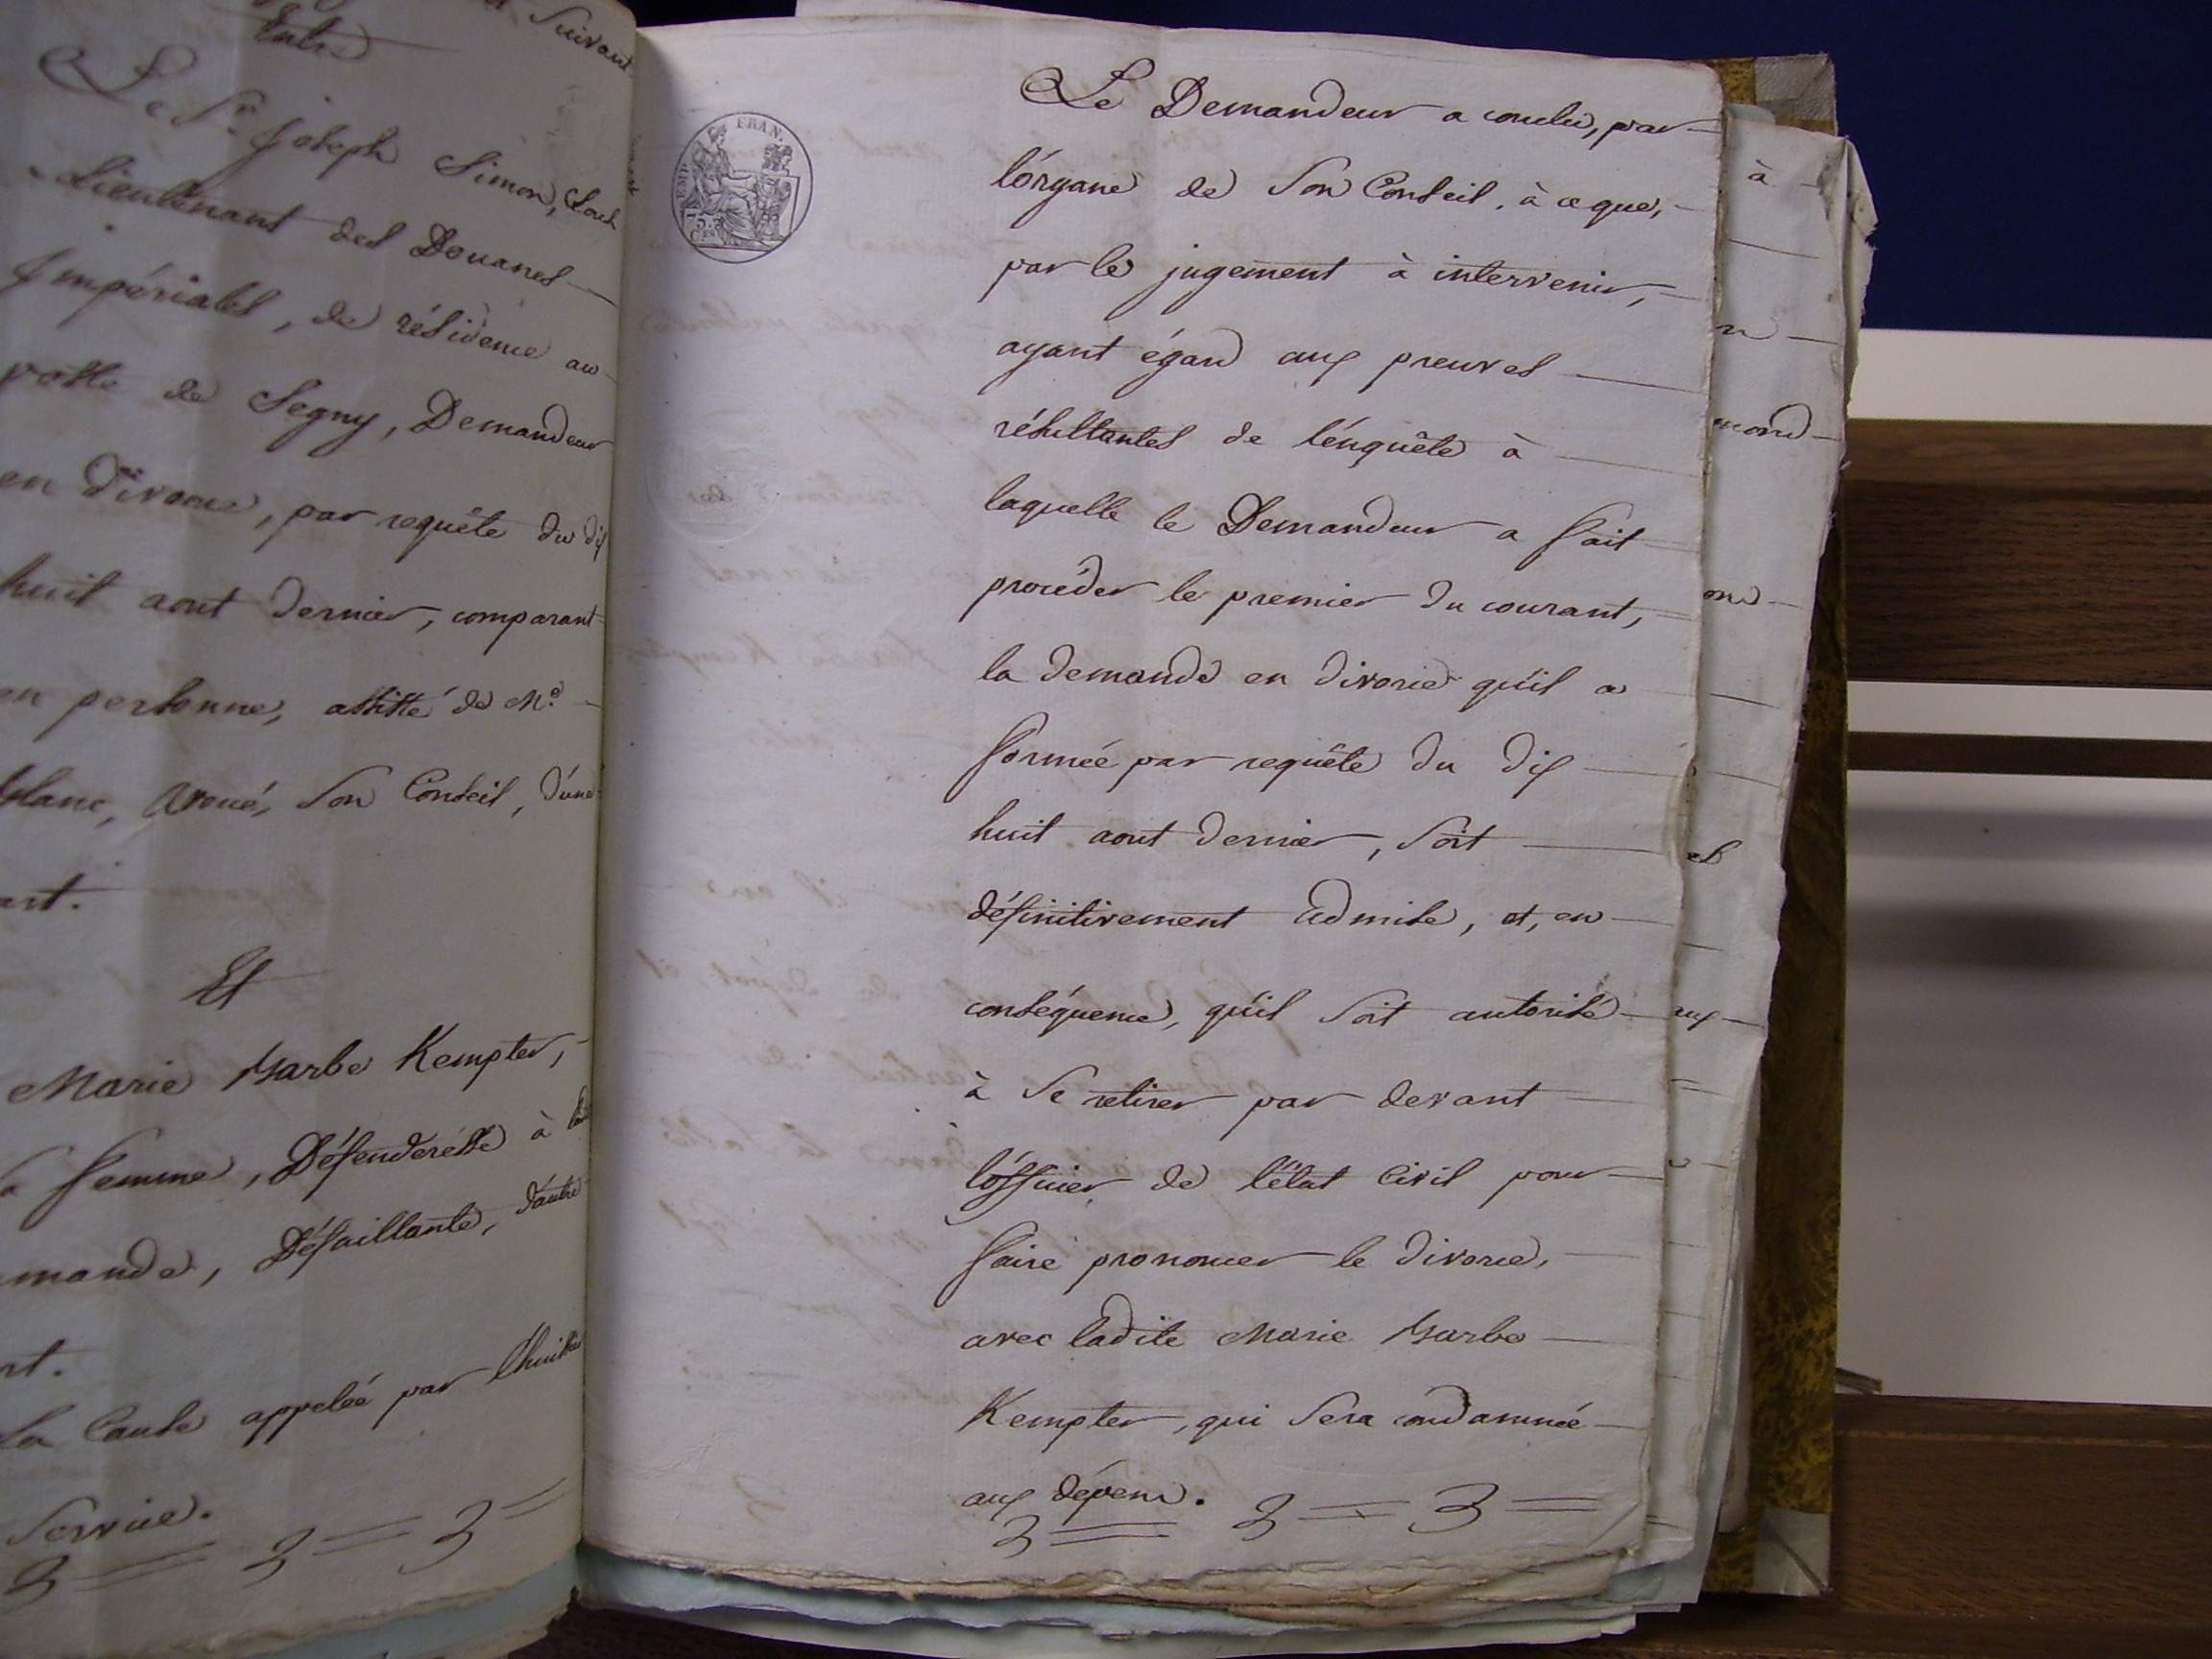 Suivant
Entre
Le Sr. Joseph Simon, Sous
Lieutenant des Douanes
Impériales, de résidence au
poste de Segny, Demandeur
en divorce, par requête du dix
huit aout dernier, comparant
en personne, assisté de Me.
blanc, avoué, Son Conseil, d'une
art.
Et
Marie Barbe Kempter,
a femme, Défenderesse à
mande, Défaillante, d'autre
rt.
La Cause appelée par l'huissier
Service.
FRAN.
EMP.
75 C.es
Le Demandeur a conclu, par
l'organe de Son Conseil, à ce que,
par le jugement à intervenir,
ayant égard aux preuves
résultantes de l'enquête à
laquelle le Demandeur a fait
procéder le premier du courant,
la demande en divorce qu'il a
formée par requête du dix
huit aout dernier, soit
définitivement admise, et, en
conséquence, qu'il soit autorisé
à se retirer par devant
l'officier de l'état civil pour
faire prononcer le divorce,
avec ladite Marie Barbe
Kempter, qui sera condamnée
aux dépens.
à
n
mond
ond
es
aux